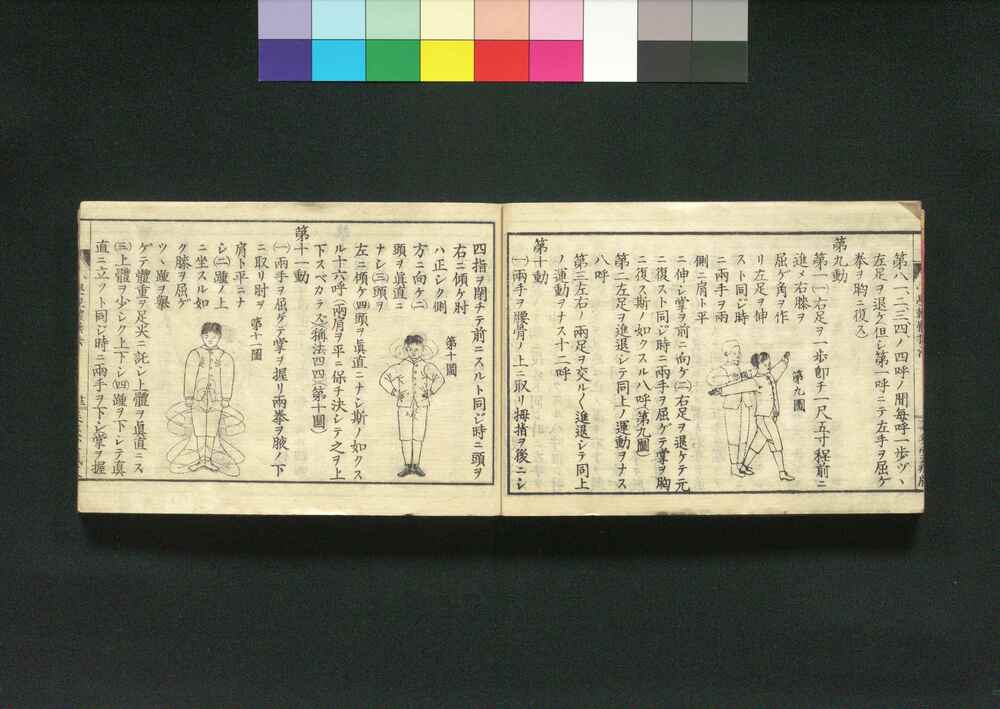 第八一、二三四ノ四呼ノ間毎呼一歩ヅヽ
左足ヲ退ケ但シ第一呼ニテ左手ヲ屈ゲ
拳ヲ胸ニ復ス
第九動
第一(一)右足ヲ一歩卽チ一尺五寸程前ニ
進メ右膝ヲ
屈ゲ角ヲ作
リ左足ヲ伸
スト同ジ時
ニ兩手ヲ兩
側ニ肩ト平
ニ伸シ掌ヲ前ニ向ケ(二)右足ヲ退ケテ元
ニ復スト同ジ時ニ兩手ヲ屈ゲテ掌ヲ胸
ニ復ス斯ノ如クスル八呼(第九圖)
第二左足ヲ進退シテ同上ノ運動ヲナス
八呼
第三左右ノ兩足ヲ交ル〱進退シテ同上
ノ運動ヲナス十二呼
第十動
(一)兩手ヲ腰骨ノ上ニ取リ拇指ヲ後ニシ
第九圖
四指ヲ閉チテ前ニスルト同ジ時ニ頭ヲ
右ニ傾ケ肘
ハ正シク側
方ニ向ケ(二)
頭ヲ眞直ニ
ナシ(三)頭ヲ
左ニ傾ケ(四)頭ヲ眞直ニナシ斯ノ如クス
ル十六呼(兩肩ヲ平ニ保チ決シテ之ヲ上
下スベカラズ)稱法四四(第十圖)
第十圖
第十一動
(一)兩手ヲ屈ゲテ掌ヲ握リ兩拳ヲ腋ノ下
ニ取リ肘ヲ
肩ト平ニナ
シ(二)踵ノ上
ニ坐スル如
ク膝ヲ屈ゲ
ツヽ踵ヲ擧
ゲテ體重ヲ足尖ニ託シ上體ヲ眞直ニス
(三)上體ヲ少シク上下シ(四)踵ヲ下シテ眞
直ニ立ツト同ジ時ニ兩手ヲ下シ掌ヲ握
第十一圖